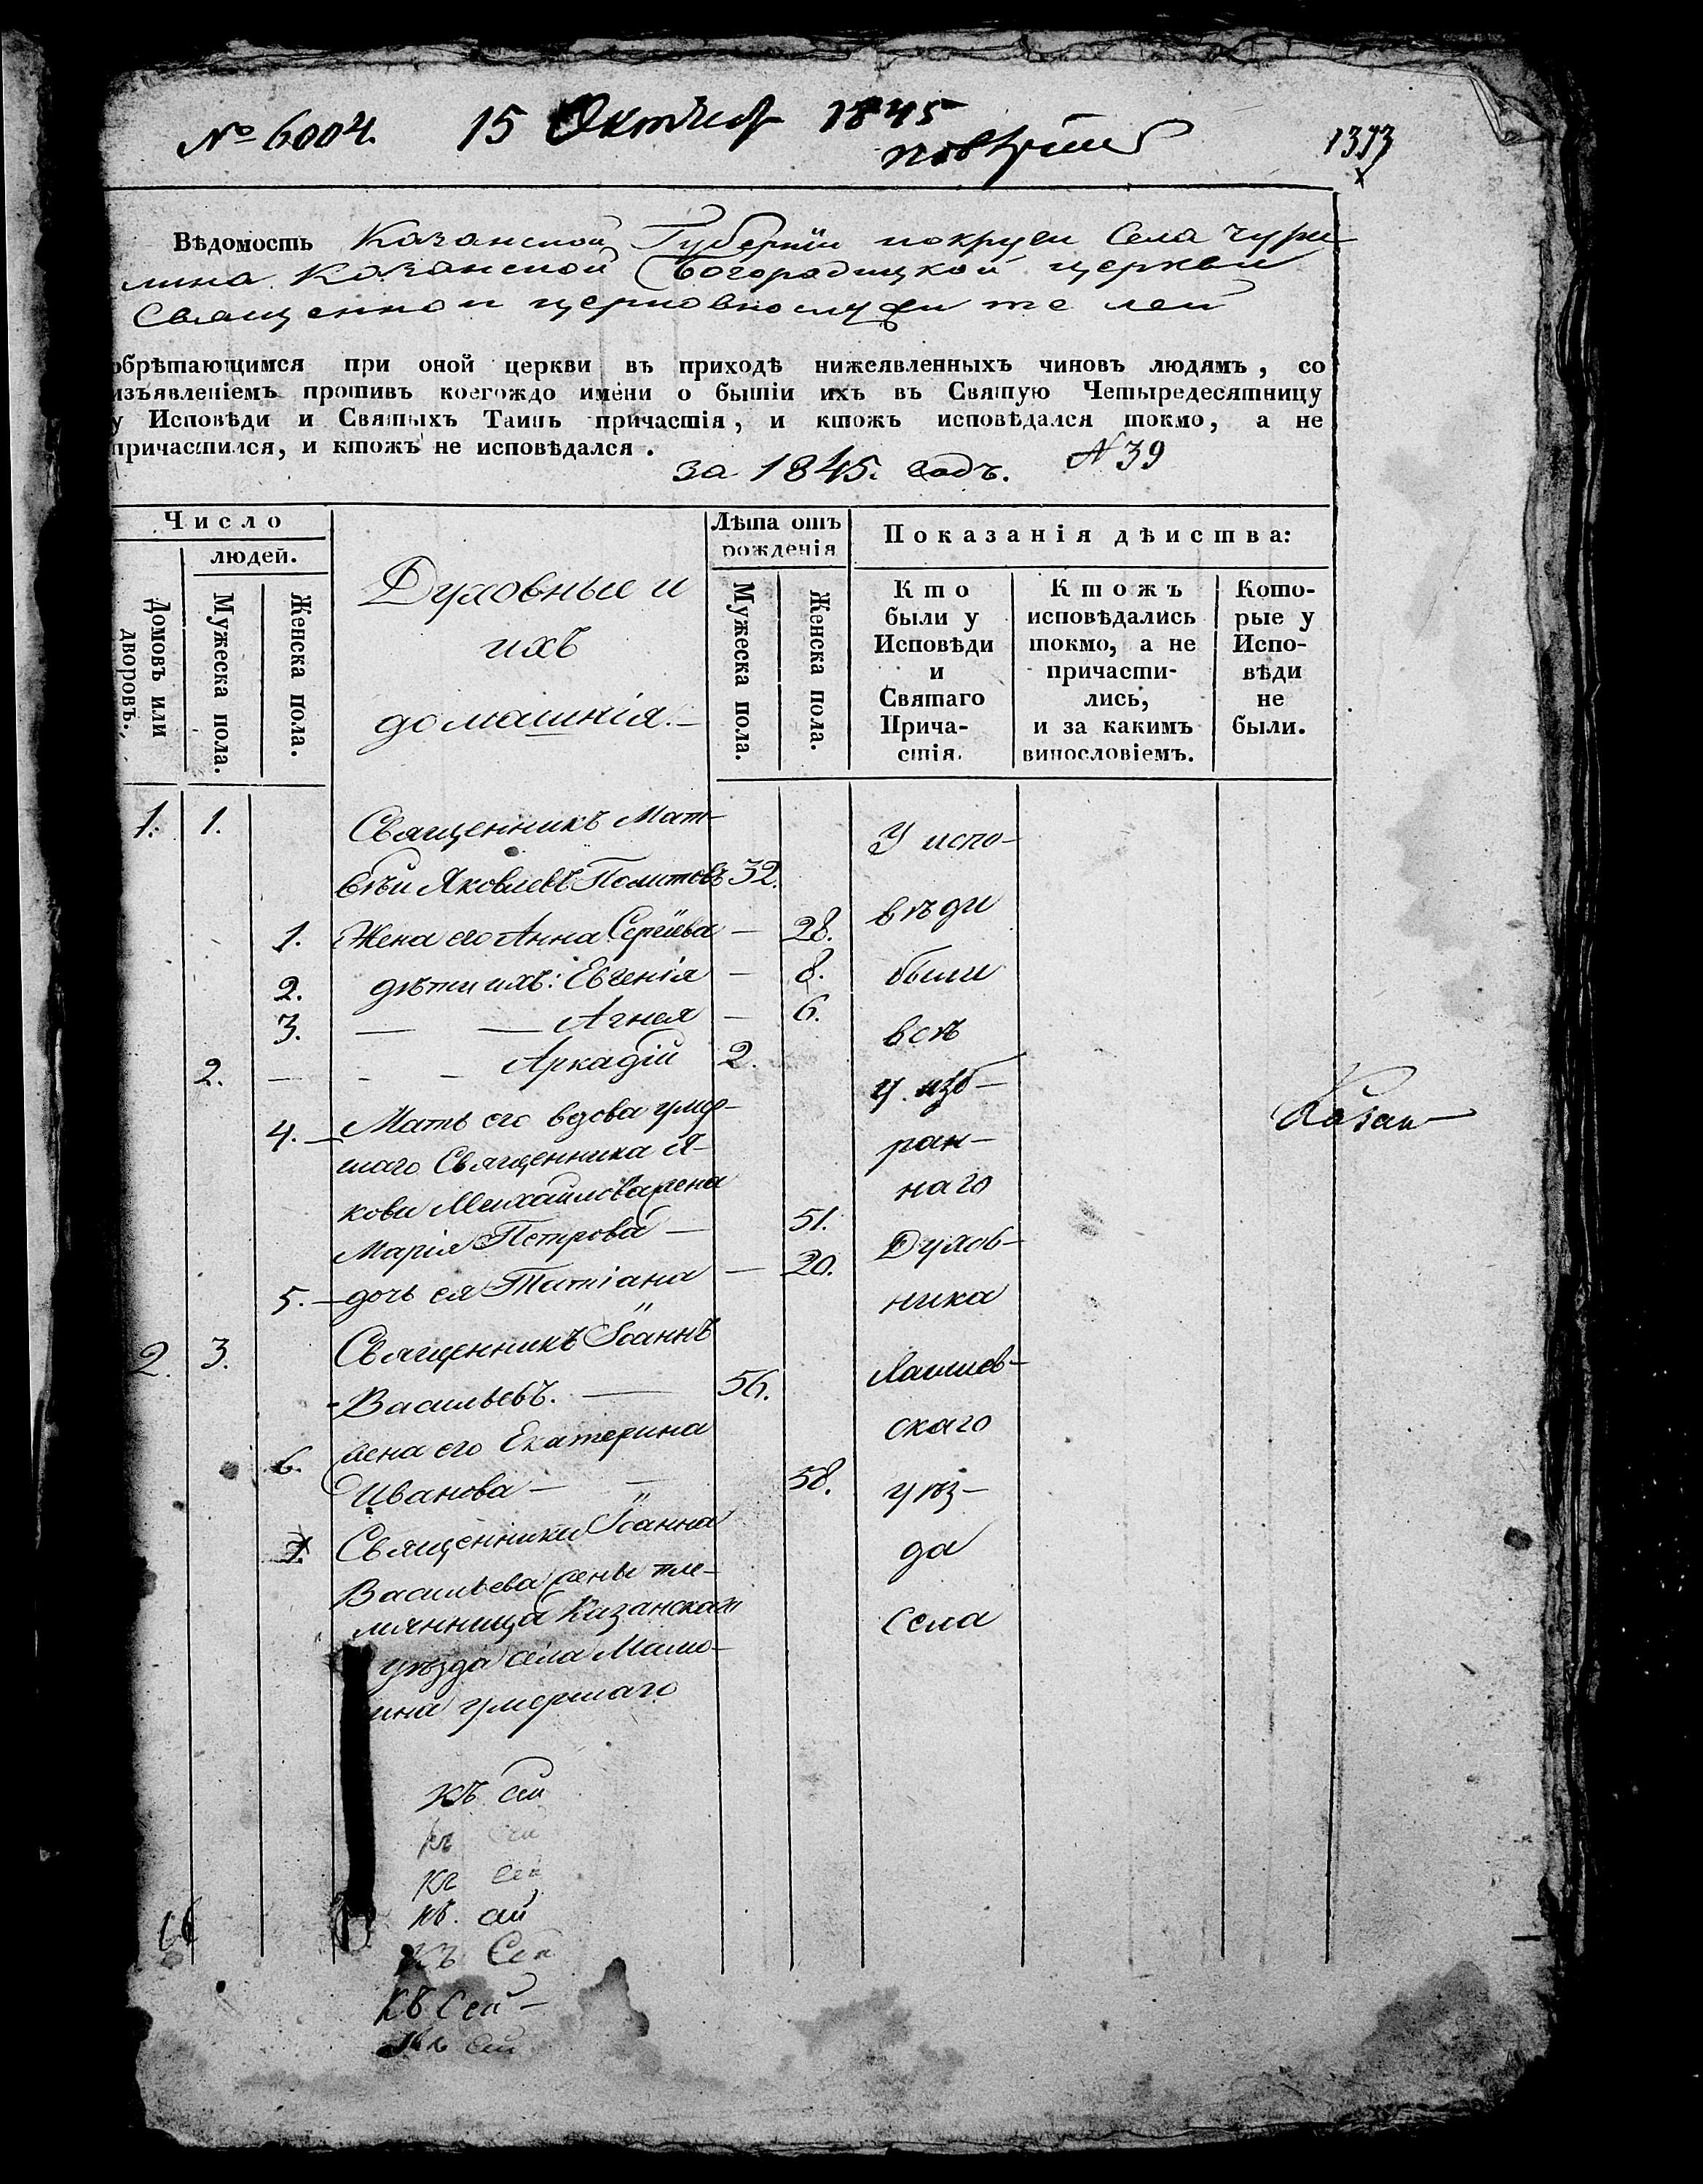 № 6004. 15 Октября 1845
1393
Вѣдомость Казанской Губернiи покруги Села Чури-
лина Казанской Богородицкой церкви
Священно и церковнослужителей
обрѣтающимся при оной церкви въ приходѣ нижеявленныхъ чиновъ людямъ, со
изъявленіемъ противъ коегождо имени о бытіи ихъ въ Святую Четыредесятницу
у Исповѣди и Святыхъ Таинъ причастія, и ктожъ исповѣдался токмо, а не
причастился, и ктожъ не исповѣдался.
за 1845. годъ. N 39
Число
людей.
Домовъ или дворовъ.
Мужеска пола.
Женска пола.
Духовные и
ихъ
домашнія.
Лѣта отъ
рожденія
Мужеска пола.
Женска пола.
Показанія дѣиства:
Кто
были у
Исповѣди
и
Святаго
Прича-
стія.
Ктожъ
исповѣдались
токмо, а не
причасти-
лись,
и за какимъ
винословіемъ.
Кото-
рые у
Испо-
вѣди
не
были.
1. 1. Священникъ Мат-
вѣй Яковлевъ Политовъ 32.
1. Жена его Анна Сергіева — 28.
2. дѣти ихъ: Евгенія — 8.
3. — — Агнея — 6.
2. — - - Аркадій 2.
4. — Мать его вдова умер-
шаго Священника Я-
кова Михайлова жена
Марія Петрова — 51.
5. — дочь ея Татіана — 20.
2. 3. Священникъ Іоаннъ
Васильевъ. — 56.
6. жена его Екатерина
Иванова — 58.
7. Священника Іоанна
Васильева жены пле-
мянница Казанскаго
уѣзда села
умершаго
У испо-
вѣди
были
всѣ
у изб-
ран-
наго
Духов-
ника
Лаишев-
скаго
уѣз-
да
села
Казан-
къ сей
къ сей
къ сей
къ. сей
къ Сей
Къ Сей -
къ сей